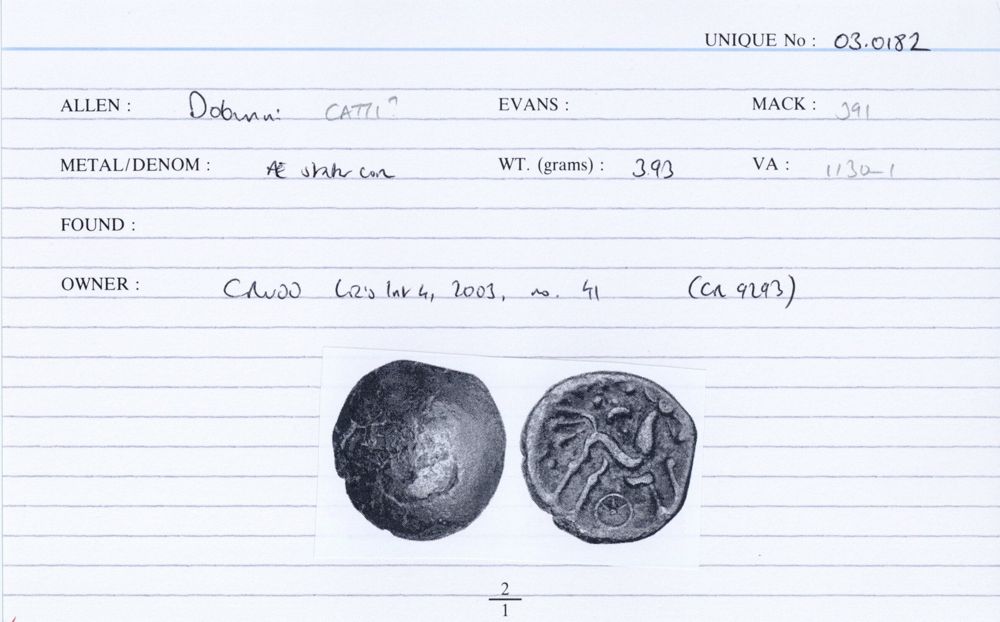 UNIQUE No : 03.0182
ALLEN : Dobunni CATTI? EVANS : MACK : 391
METAL/DENOM : Æ stater core WT. (grams) : 3.93 VA : 1130-1
FOUND :
OWNER : List 4, 2003, no. 41 (CR 9293)
2
1